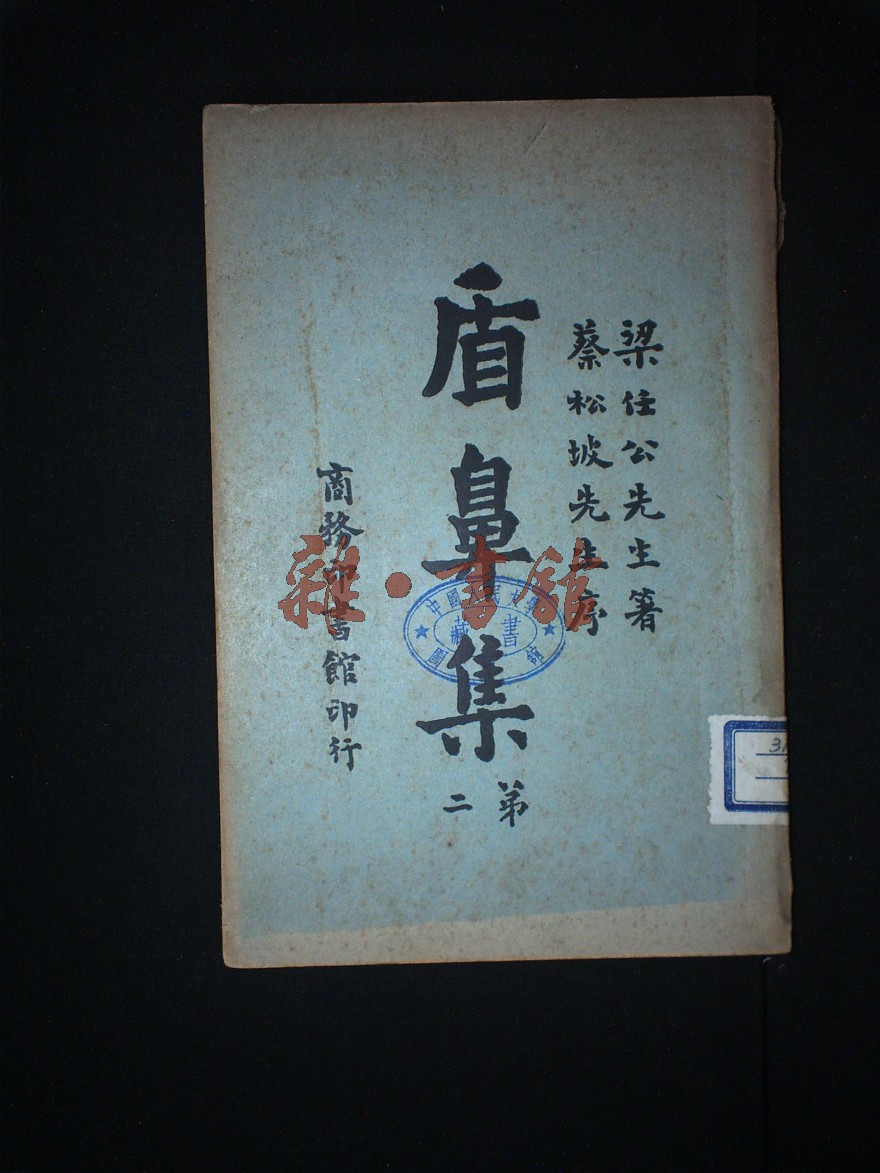 梁任公先生箸
蔡松坡先生序
盾鼻集
第二
商務印書館印行
雜·書館
藏書
31